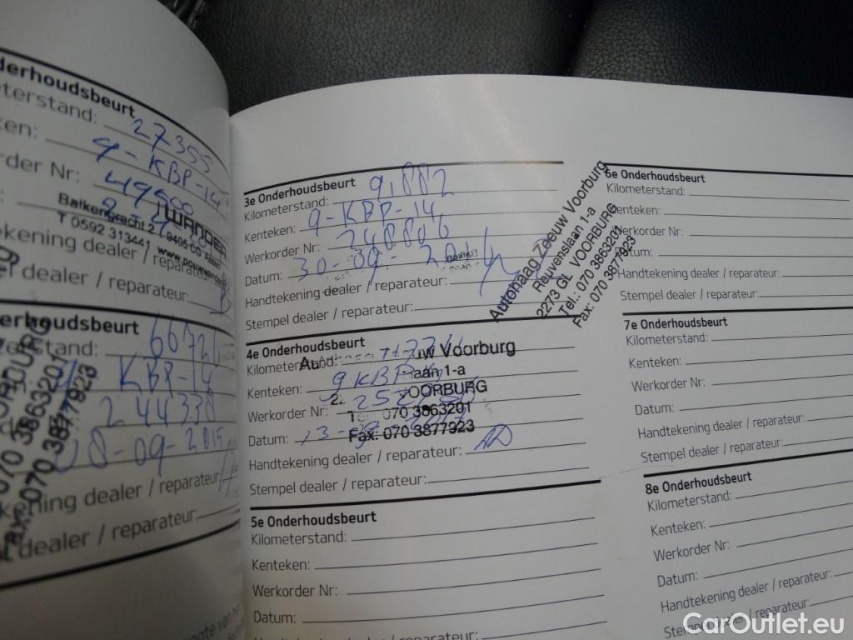 derhoudsbeurt
terstand: 27355
ken: 9-KBP-14
der Nr: 49600
WANDER
Balkengracht 2 9405 CC Assen
T 0592 313441
kening dealer / reparateur
dealer / reparateur:
erhoudsbeurt
stand: 66721
KBP-14
244330
08-09-2015
ening dealer / reparateur
dealer / reparateur:
070 3863201
070 3877923
3e Onderhoudsbeurt
Kilometerstand: 9.882
Kenteken: 9-KBP-14
Werkorder Nr: 248806
Datum: 30-09-20
Handtekening dealer / reparateur:
Stempel dealer / reparateur:
Autohaag Zeeuw Voorburg
Reuvenslaan 1-a
2273 GL VOORBURG
Tel.: 070 3863201
Fax: 070 3877923
4e Onderhoudsbeurt
Kilometerstand:
uw Voorburg
Kenteken: 9KBP
laan 1-a
Werkorder Nr:
VOORBURG
070 3863201
Datum: 13-
Fax: 070 3877923
Handtekening dealer / reparateur:
Stempel dealer / reparateur:
5e Onderhoudsbeurt
Kilometerstand:
Kenteken:
Werkorder Nr:
Datum:
reparateur:
6e Onderhoudsbeurt
Kilometerstand:
Kenteken:
Werkorder Nr:
Datum:
Handtekening dealer / reparateur:
Stempel dealer / reparateur:
7e Onderhoudsbeurt
Kilometerstand:
Kenteken:
Werkorder Nr:
Datum:
Handtekening dealer / reparateur:
Stempel dealer / reparateur:
8e Onderhoudsbeurt
Kilometerstand:
Kenteken:
Werkorder Nr:
Datum:
Handtekening dealer / reparateur:
reparateur:
CarOutlet.eu